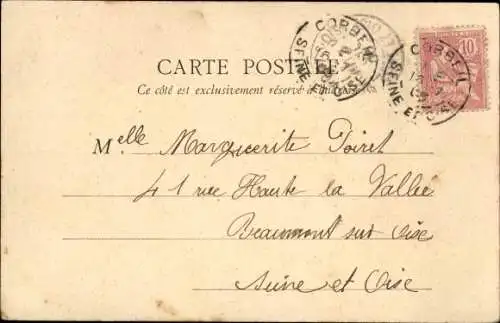 CORBEIL
SEINE ET OISE
CORBEIL
SEINE ET OISE
10
CARTE POSTALE
Ce côté est exclusivement réservé à l'adresse
Melle Marguerite Poiret
41 rue Haute la Vallée
Beaumont sur Oise
Seine et Oise